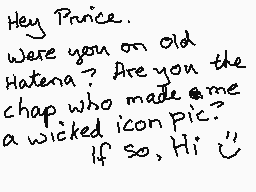 Hey Prince.
Were you on old
Hatena? Are you the
chap who made me
a wicked icon pic?
If so, Hi :)